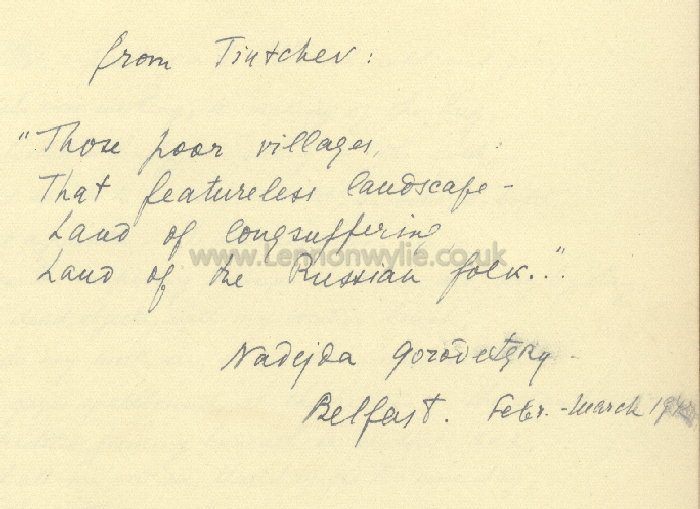 from Tiutchev:
"Those poor villages,
That featureless landscape -
Land of longsuffering
www.Lennonwylie.co.uk
Land of the Russian folk..."
Nadejda Gorodetzky
Belfast. Febr. - March